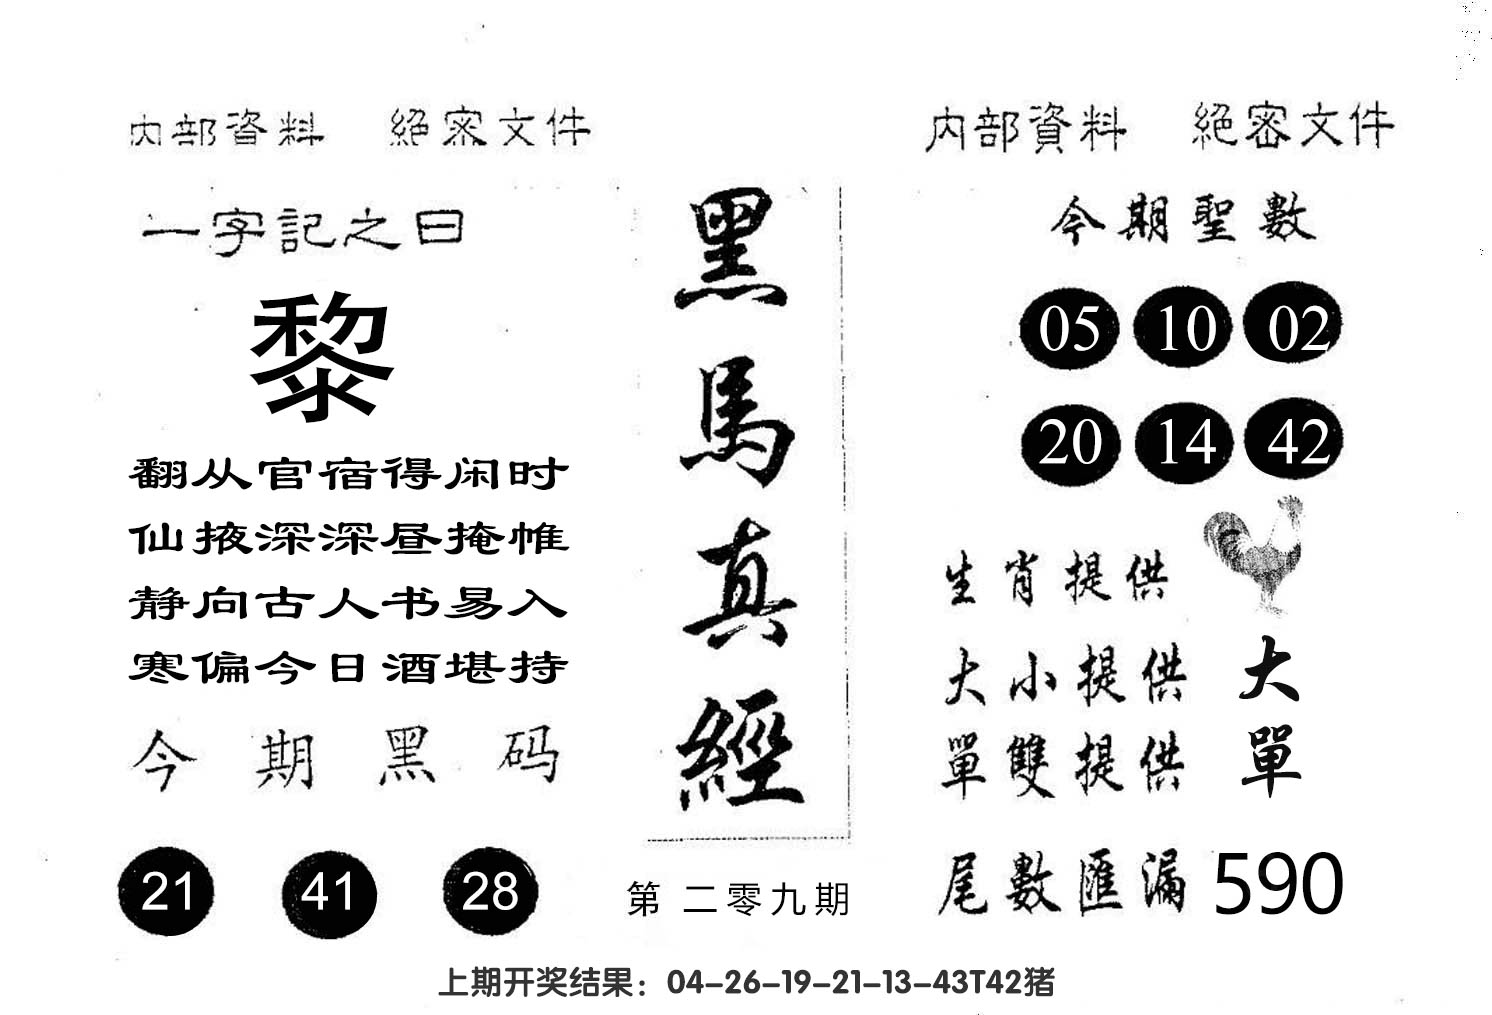 内部資料 絕密文件
一字記之曰
黎
翻从官宿得闲时
仙掖深深昼掩帷
静向古人书易入
寒偏今日酒堪持
今期黑码
21 41 28
黑馬真經
第 二零九期
内部資料 絕密文件
今期聖數
05 10 02
20 14 42
生肖提供
大小提供 大
單雙提供 單
尾數匯漏 590
上期开奖结果：04-26-19-21-13-43T42猪